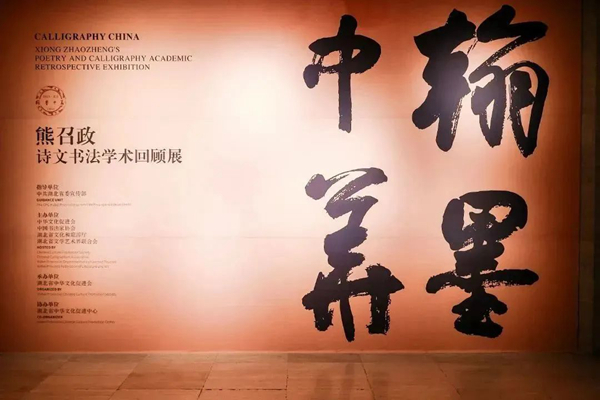 CALLIGRAPHY CHINA
XIONG ZHAOZHENG'S
POETRY AND CALLIGRAPHY ACADEMIC
RETROSPECTIVE EXHIBITION
熊召政
诗文书法学术回顾展
指导单位
中共湖北省委宣传部
主办单位
中华文化促进会
中国书法家协会
湖北省文化和旅游厅
湖北省文学艺术界联合会
承办单位
湖北省中华文化促进会
协办单位
湖北省中华文化促进中心
翰墨
中华